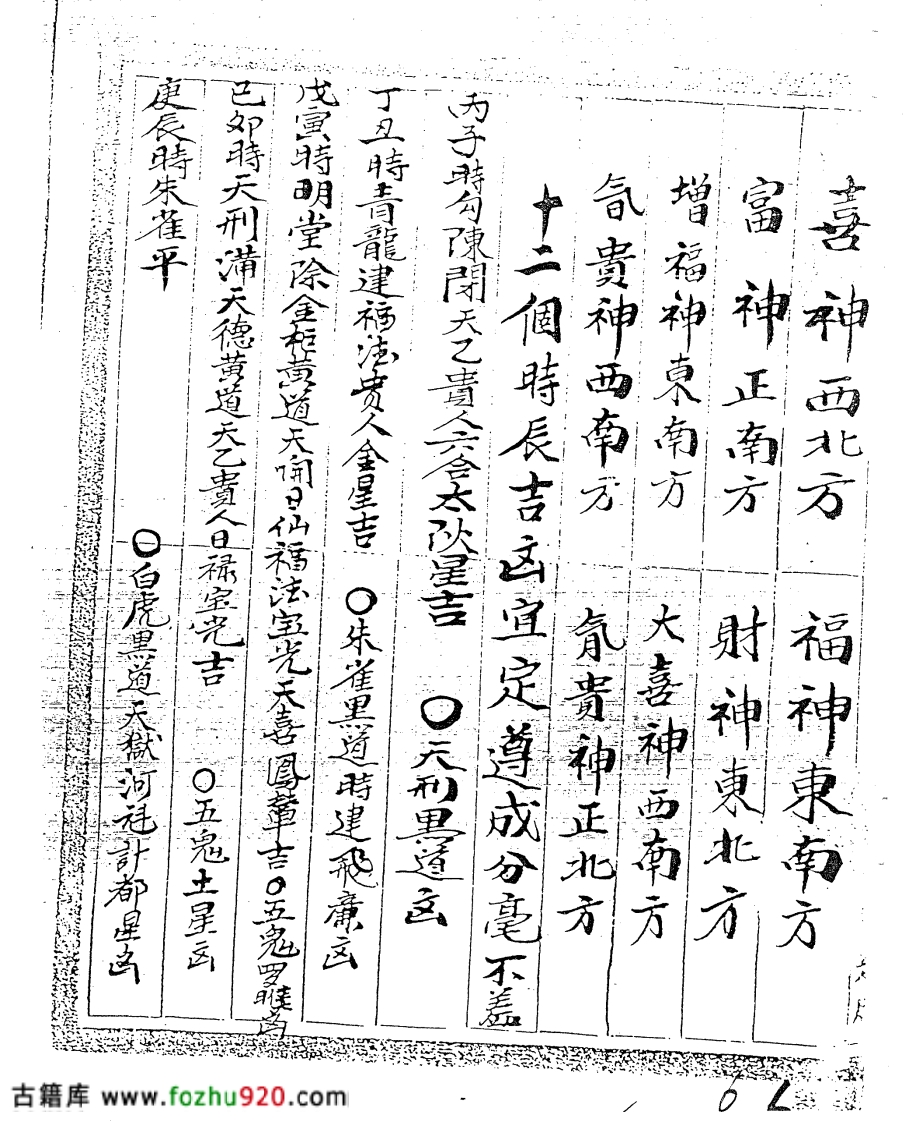 喜神西北方　福神東南方
富神正南方　財神東北方
增福神東南方　大喜神西南方
貴神西南方　貴神正北方
十二個時辰吉凶宜定遵成分毫不差
丙子時勾陳閉天乙貴人六合太阴星吉　〇天刑黑道凶
丁丑時青龍建福法贵人金星吉　〇朱雀黑道時建飛廉凶
戊寅時明堂除金柜黄道天開日仙福法宝光天喜鳳輦吉〇五鬼罗睺凶
己卯時天刑满天德黄道天乙貴人日禄宝光吉　〇五鬼土星凶
庚辰時朱雀平　〇白虎黑道天獄河魁計都星凶
6
古籍库 www.fozhu920.com